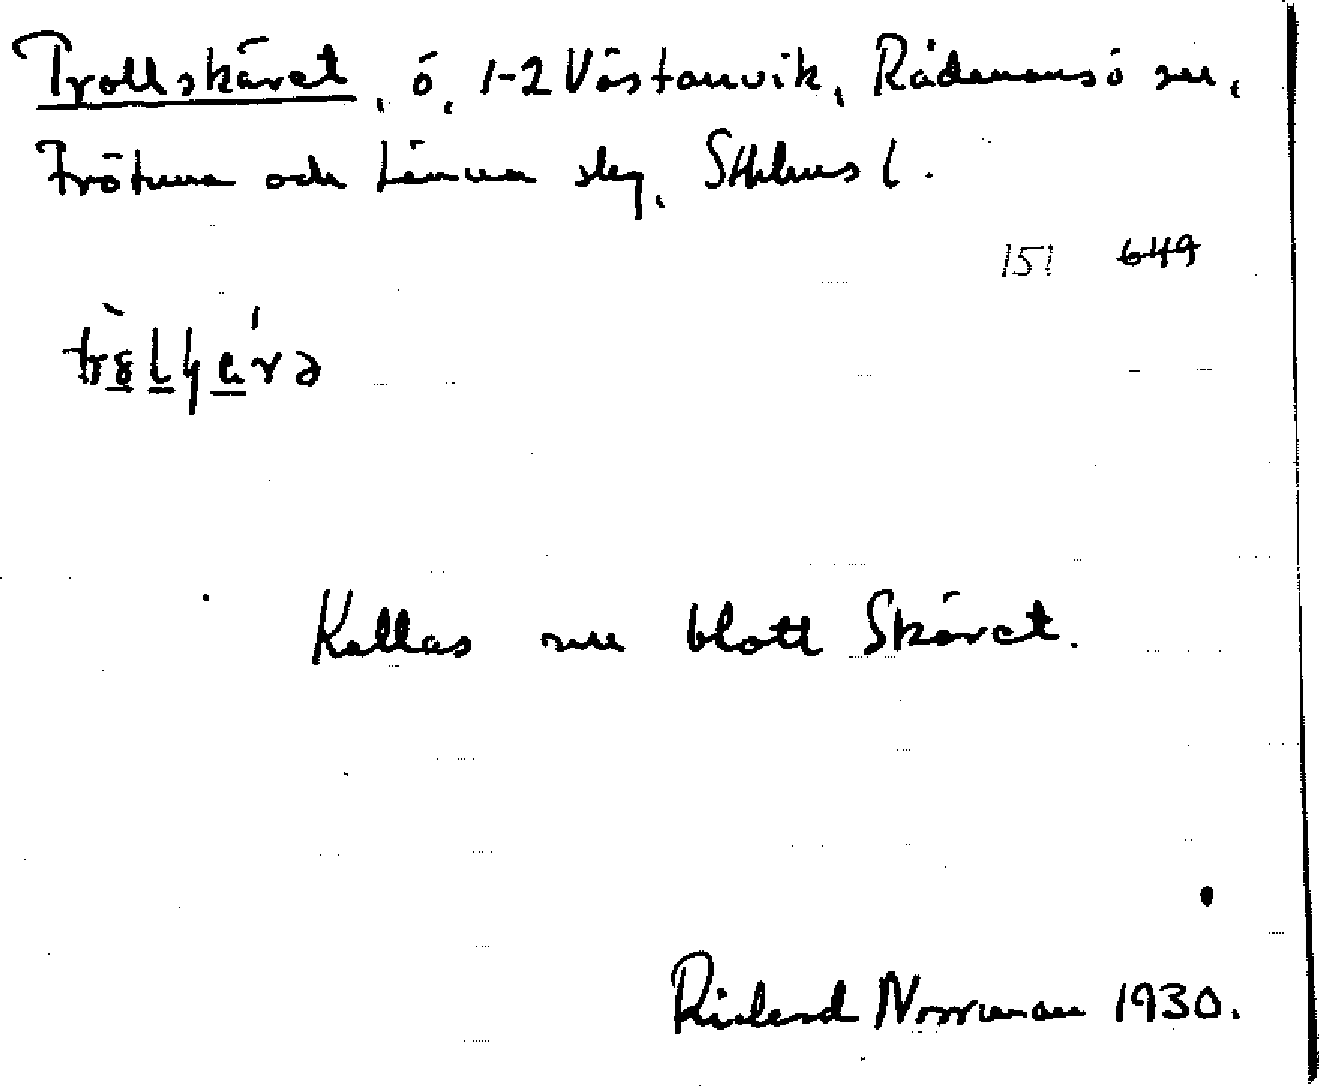 Trollskäret, ö, 1-2 Västanvik, Rådmansö sn,
Frötuna och Länna slg, Sthlms l.
151 649
Kallas nu blott Skäret.
Rickard Norrman 1930.